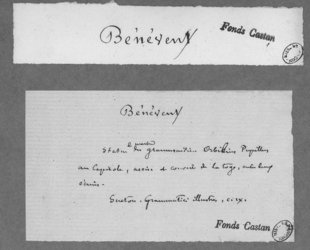 Bénévent
Fonds Castan
Bénévent
Statue du grammairien Orbilius Pupillus
au Capitole, assise et couverte de la toge, entre deux
écrins.
Sueton. Grammatici illustres, c. IX.
Fonds Castan